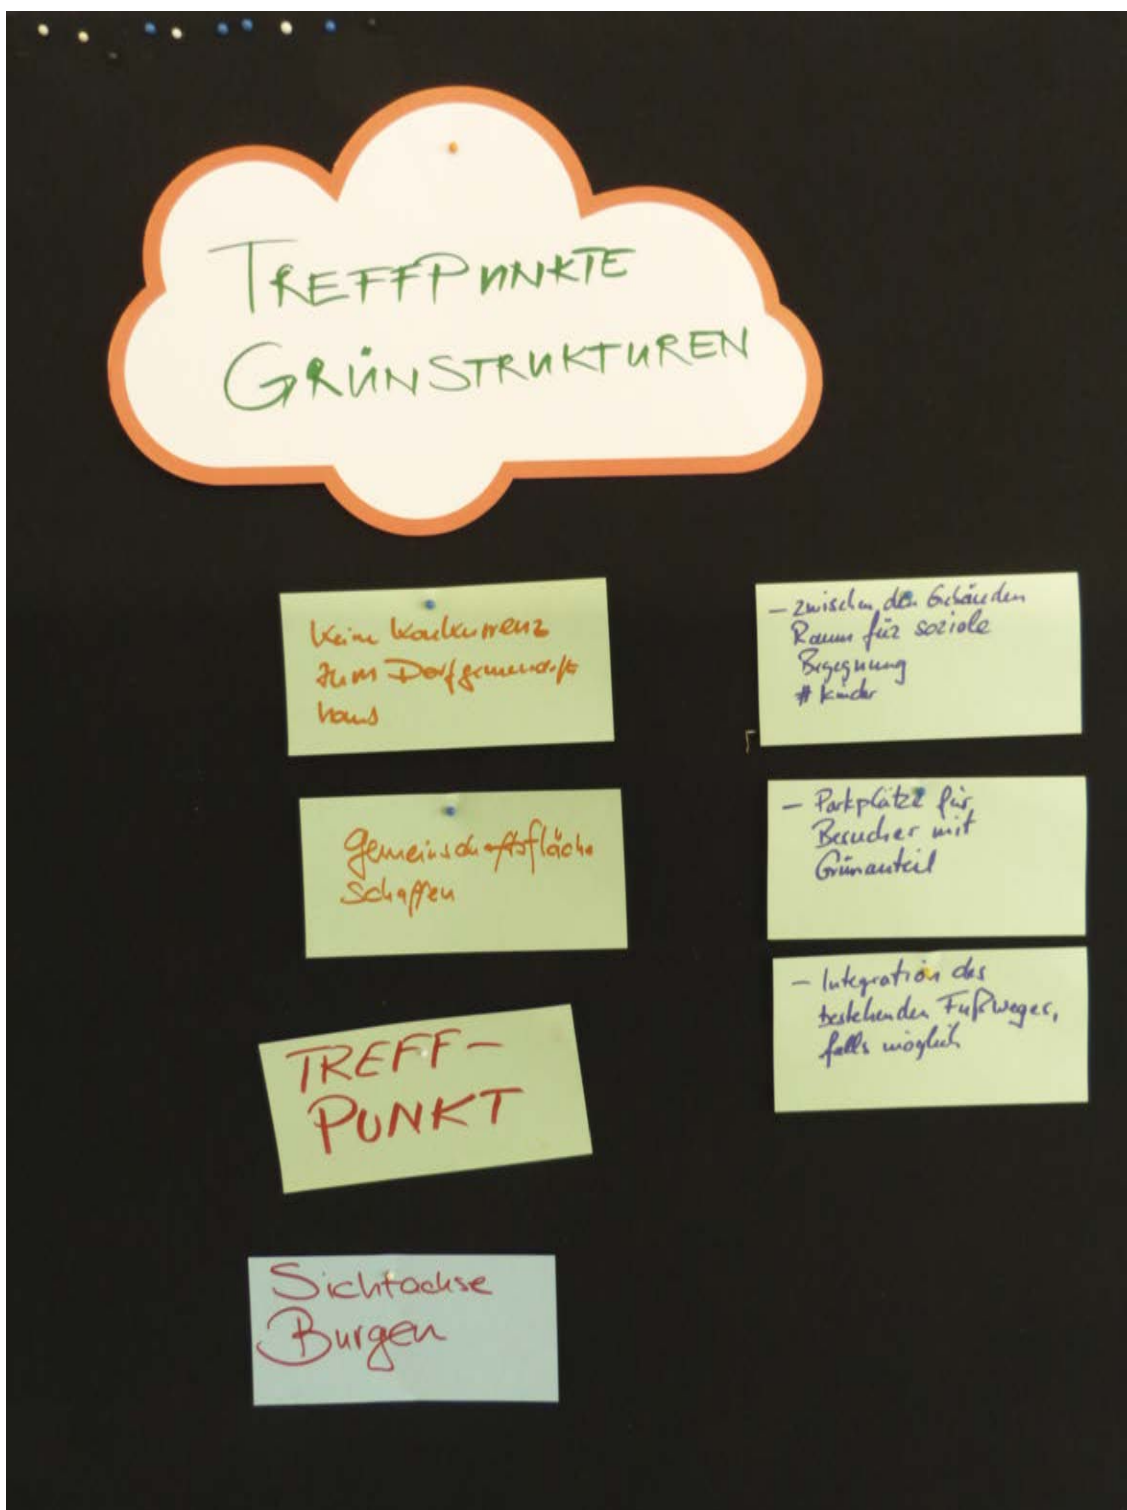 TREFFPUNKTE
GRÜNSTRUKTUREN
Keine Konkurrenz
zum Dorfgemeinschafts
haus
Gemeinschaftsfläche
schaffen
TREFF-
PUNKT
Sichtachse
Burgen
– zwischen den Gebäuden
Raum für soziale
Begegnung
# Kinder
– Parkplätze für
Besucher mit
Grünanteil
– Integration des
bestehenden Fußweges,
falls möglich